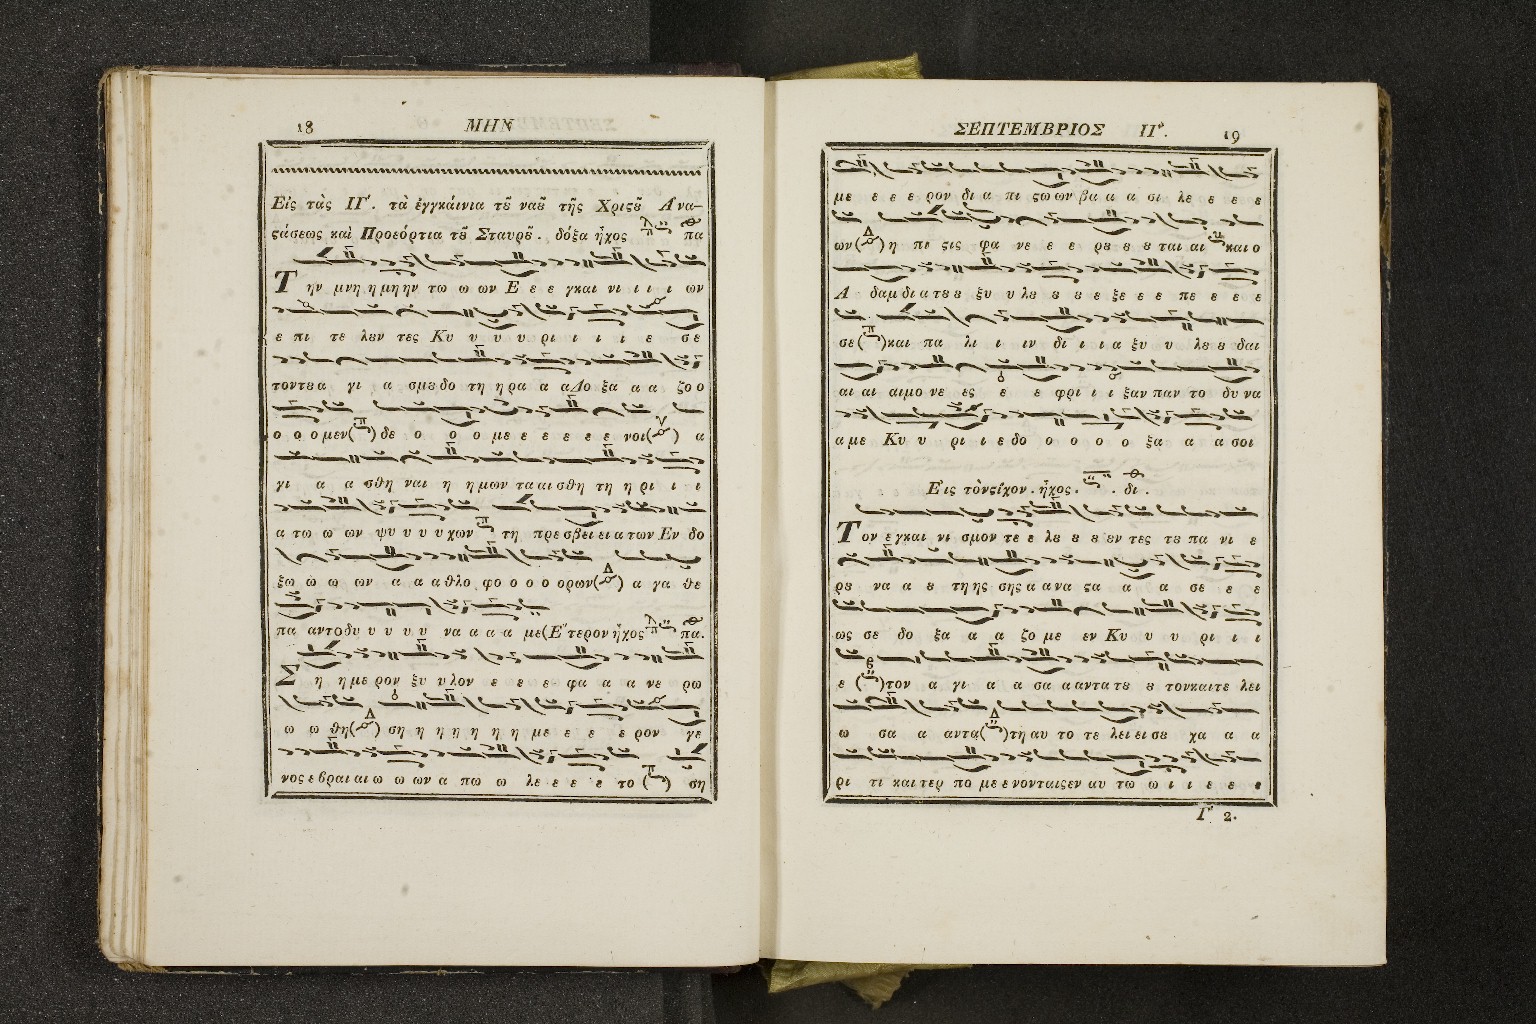 18 ΜΗΝ
Εἰς τὰς ΙΓ'. τὰ ἐγγκάινια τȣ͂ ναȣ͂ τῆς Χριςȣ͂ Ἀνα-
ςάσεως καὶ Προεόρτια τȣ͂ Σταυρȣ͂. δόξα ἦχος πα
Την μνη η μη ην τω ω ων Ε ε ε γκαι νι ι ι ι ων
ε πι τε λȣν τες Κυ υ υ υ ρι ι ι ι ε σε
τοντȣα γι α σμȣδο τη η ρα α αΔο ξα α α ζο ο
ο ο ο μεν( )δε ο ο ο με ε ε ε ε ε νοι( ) α
γι α α σθη ναι η η μων τα αι σθη τη η ρι ι ι
α τω ω ων ψυ υ υ υ χων τη πρεσβει ει α των Εν δο
ξω ω ω ων α α α θλο φο ο ο ο ορων( ) α γα θε
πα αντοδυ υ υ υ υ να α α α με(Ἕτερον ἦχος πα.
Ση η με ρον ξυ υ λον ε ε ε φα α α νε ρω
ω ω θη( ) ση η η η η η η με ε ε ε ρον γε
νος εβραι αι ω ω ων α πω ω λε ε ε ε το ( ) ση
ΣΕΠΤΕΜΒΡΙΟΣ ΙΓ'. 19
με ε ε ε ρον δι α πι ςω ων βα α α σι λε ε ε ε
ων( )η πι ςις φα νε ε ε ρȣ ȣ ȣ ται αι και ο
Α δαμ δι α τȣ ȣ ξυ υ λȣ ȣ ȣ ε ξε ε ε πε ε ε ε
σε( )και πα λι ι ιν δι ι ι α ξυ υ λȣ ȣ δαι
αι αι αιμο νε ες ε ε φρι ι ι ξαν παν το δυ να
α με Κυ υ ρι ι ε δο ο ο ο ο ξα α α σοι
Εἰς τὸν ςίχον. ἦχος. δι.
Τον εγκαι νι σμον τε ε λȣ ȣ ȣ ȣν τες τȣ πα νι ε
ρȣ να α ȣ τη ης σης α α να ςα α α σε ε ε
ως σε δο ξα α α ζο με εν Κυ υ υ ρι ι ι
ε ( )τον α γι α α σα α αντα τȣ ȣ τονκαιτε λει
ω σα α αντα( )τη αυ το τε λει ει σȣ χα α α
ρι τι και τερ πο με ε νονταιςεν αυ τω ω ι ι ε ε
Γ 2.